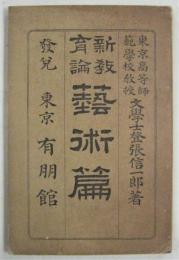 東京高等師
範學校教授
文學士登張信一郎著
新教
育論
藝術篇
發兌　東京　有朋館